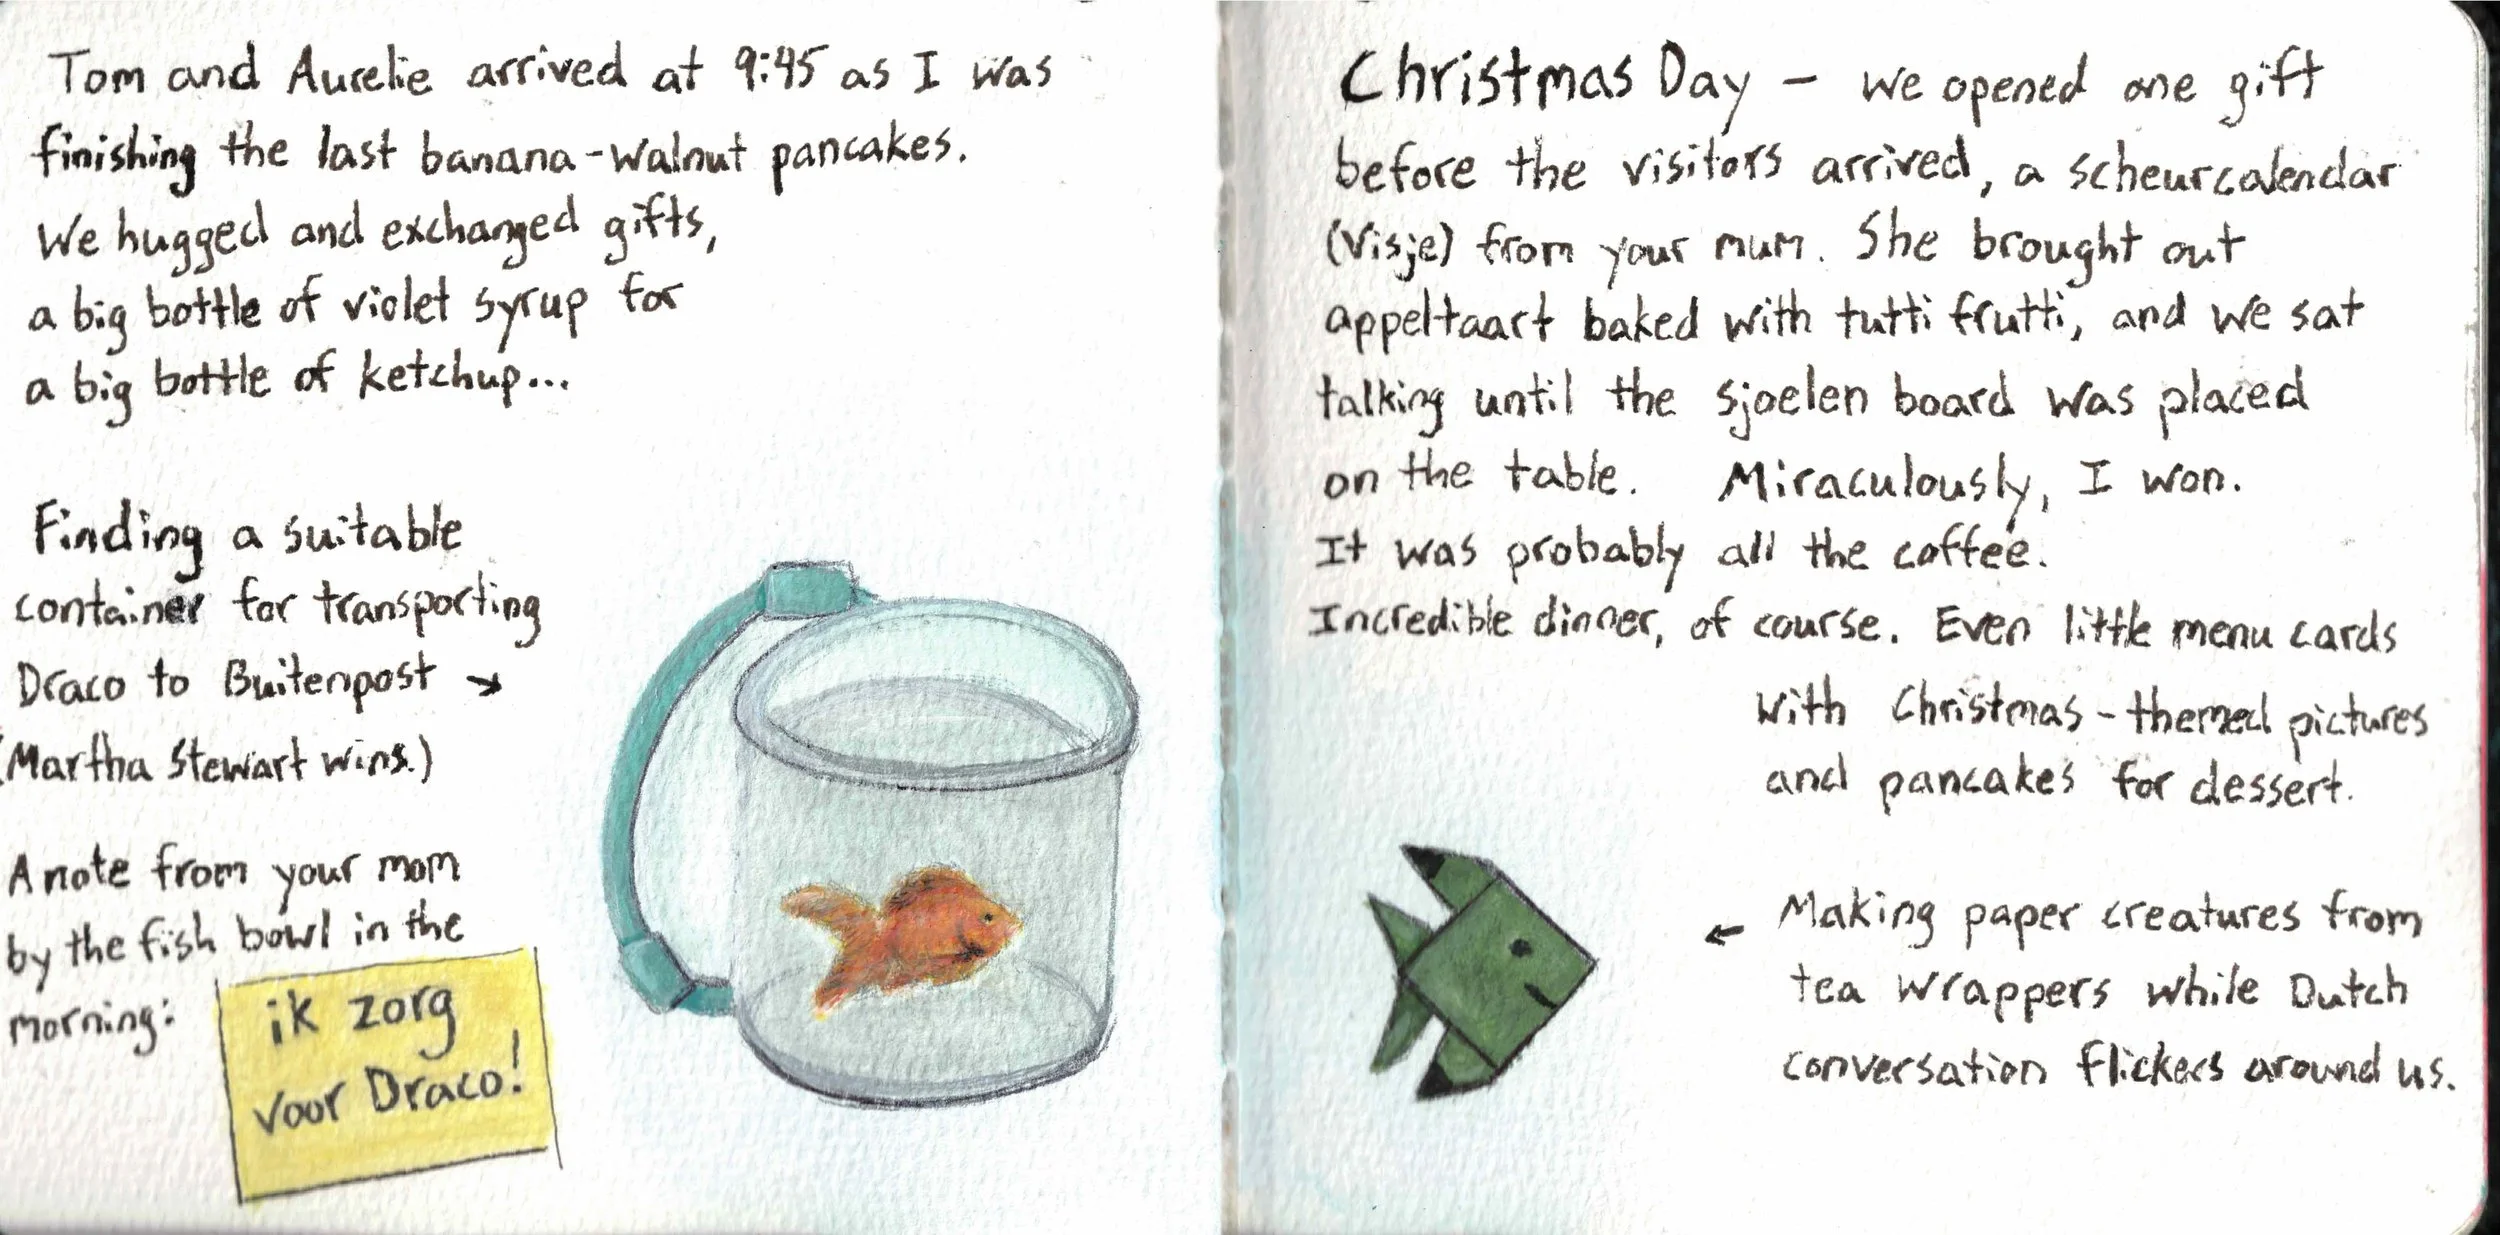 Tom and Aurelie arrived at 9:45 as I was
finishing the last banana-walnut pancakes.
We hugged and exchanged gifts,
a big bottle of violet syrup for
a big bottle of ketchup...
Finding a suitable
container for transporting
Draco to Buitenpost →
(Martha Stewart wins.)
A note from your mom
by the fish bowl in the
morning:
ik zorg
voor Draco!
Christmas Day – we opened one gift
before the visitors arrived, a scheurcalendar
(Visje) from your mum. She brought out
appeltaart baked with tutti frutti, and we sat
talking until the sjoelen board was placed
on the table. Miraculously, I won.
It was probably all the coffee.
Incredible dinner, of course. Even little menu cards
with Christmas-themed pictures
and pancakes for dessert.
← Making paper creatures from
tea wrappers while Dutch
conversation flickers around us.